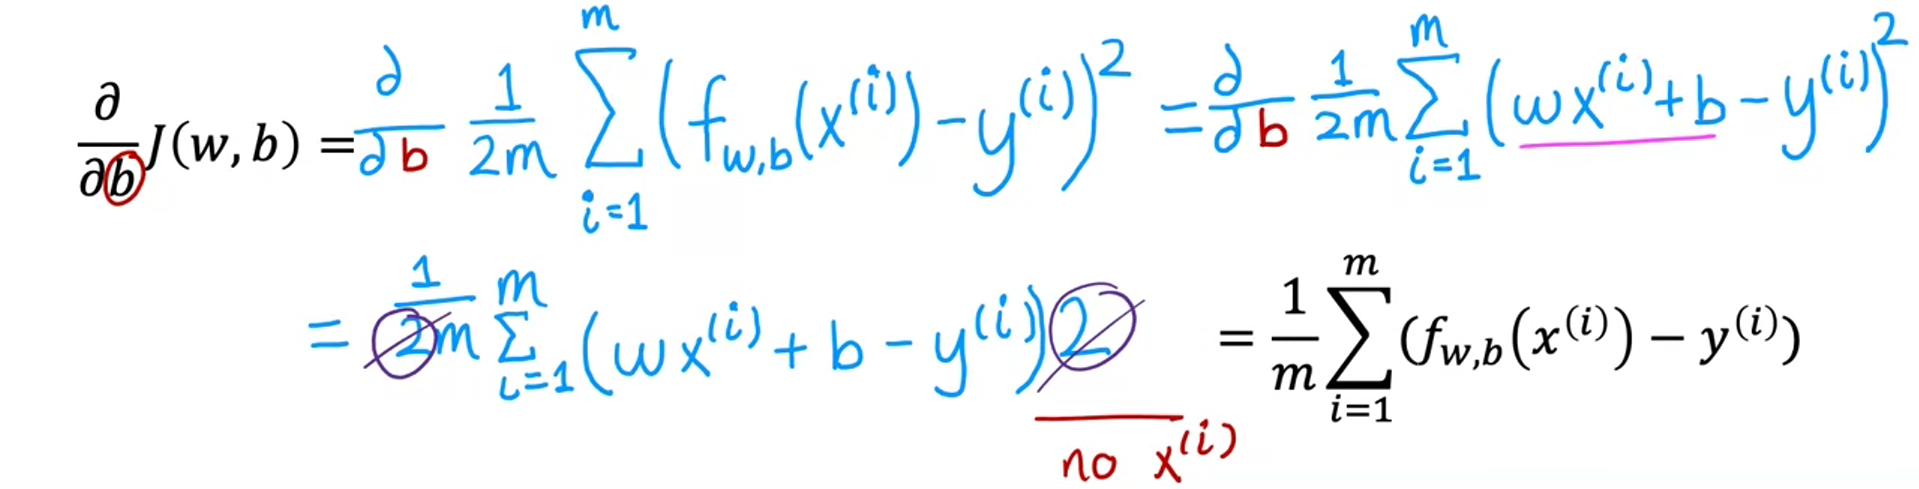 ∂/∂b J(w, b) = ∂/∂b 1/2m ∑_{i=1}^{m} (f_{w,b}(x^{(i)}) − y^{(i)})² = ∂/∂b 1/2m ∑_{i=1}^{m} (wx^{(i)} + b − y^{(i)})²
= 1/2m ∑_{i=1}^{m} (wx^{(i)} + b − y^{(i)}) 2 = 1/m ∑_{i=1}^{m} (f_{w,b}(x^{(i)}) − y^{(i)})
no x^{(i)}